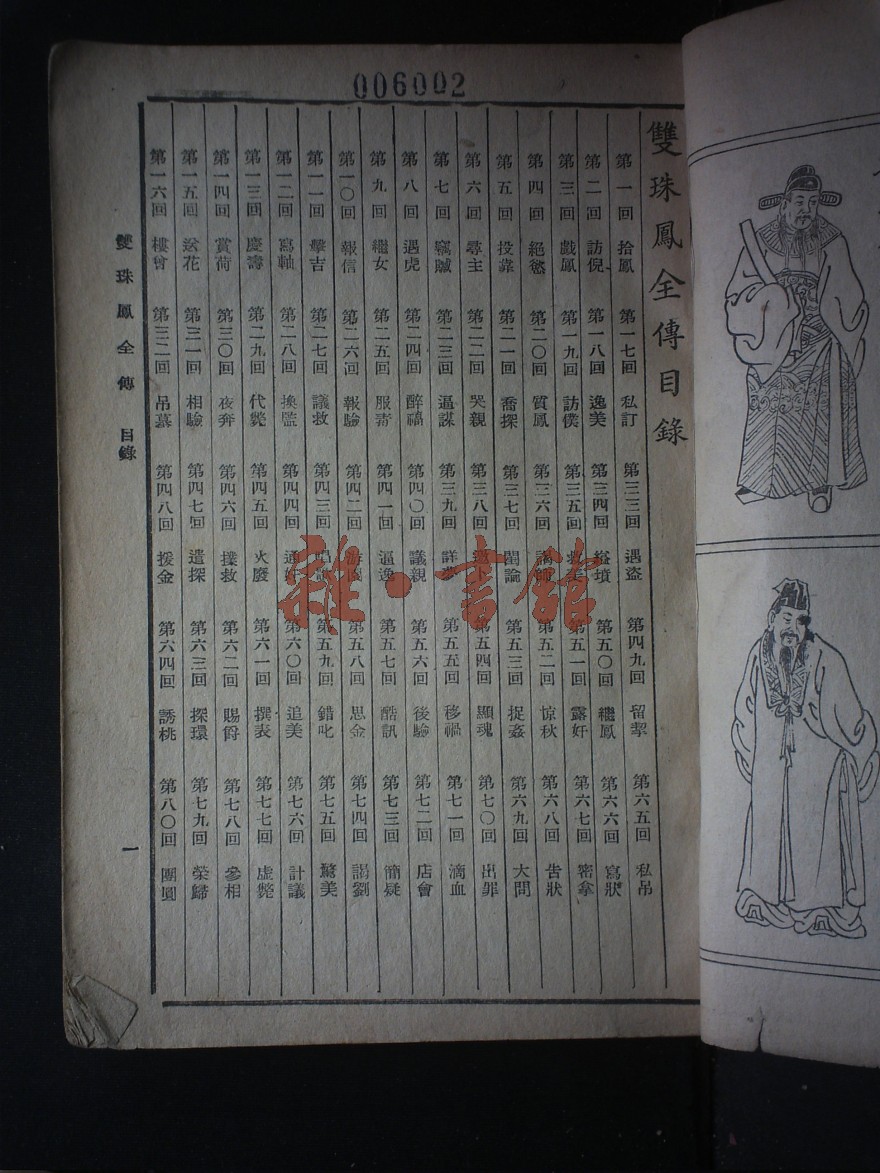 006002
雙珠鳳全傳目錄
第一回 拾鳳 第一七回 私訂 第三三回 遇盜 第四九回 留挈 第六五回 私吊
第二回 訪倪 第一八回 逸美 第三四回 盜墳 第五〇回 繼鳳 第六六回 寫狀
第三回 戲鳳 第一九回 訪僕 第三五回 救美 第五一回 露奸 第六七回 密拿
第四回 絕慾 第二〇回 質鳳 第三六回 謁師 第五二回 惊秋 第六八回 告狀
第五回 投靠 第二一回 喬探 第三七回 閨論 第五三回 捉姦 第六九回 大問
第六回 尋主 第二二回 哭親 第三八回 第五四回 顯魂 第七〇回 出罪
第七回 竊贓 第二三回 逼謀 第三九回 詳夢 第五五回 移禍 第七一回 滴血
第八回 遇虎 第二四回 醉禍 第四〇回 議親 第五六回 後驗 第七二回 店會
第九回 繼女 第二五回 服毒 第四一回 逼逸 第五七回 酷訊 第七三回 簡疑
第一〇回 報信 第二六回 報驗 第四二回 游園 第五八回 思金 第七四回 謁劉
第一一回 擊吉 第二七回 議救 第四三回 唱 第五九回 錯叱 第七五回 驚美
第一二回 寫軸 第二八回 換監 第四四回 通奸 第六〇回 追美 第七六回 計議
第一三回 慶壽 第二九回 代斃 第四五回 火廢 第六一回 撰表 第七七回 虛斃
第一四回 賞荷 第三〇回 夜奔 第四六回 撲救 第六二回 賜爵 第七八回 參相
第一五回 送花 第三一回 相驗 第四七回 遣探 第六三回 探環 第七九回 榮歸
第一六回 樓會 第三二回 吊墓 第四八回 援金 第六四回 誘桃 第八〇回 團圓
雙珠鳳全傳 目錄 一
雜·書館